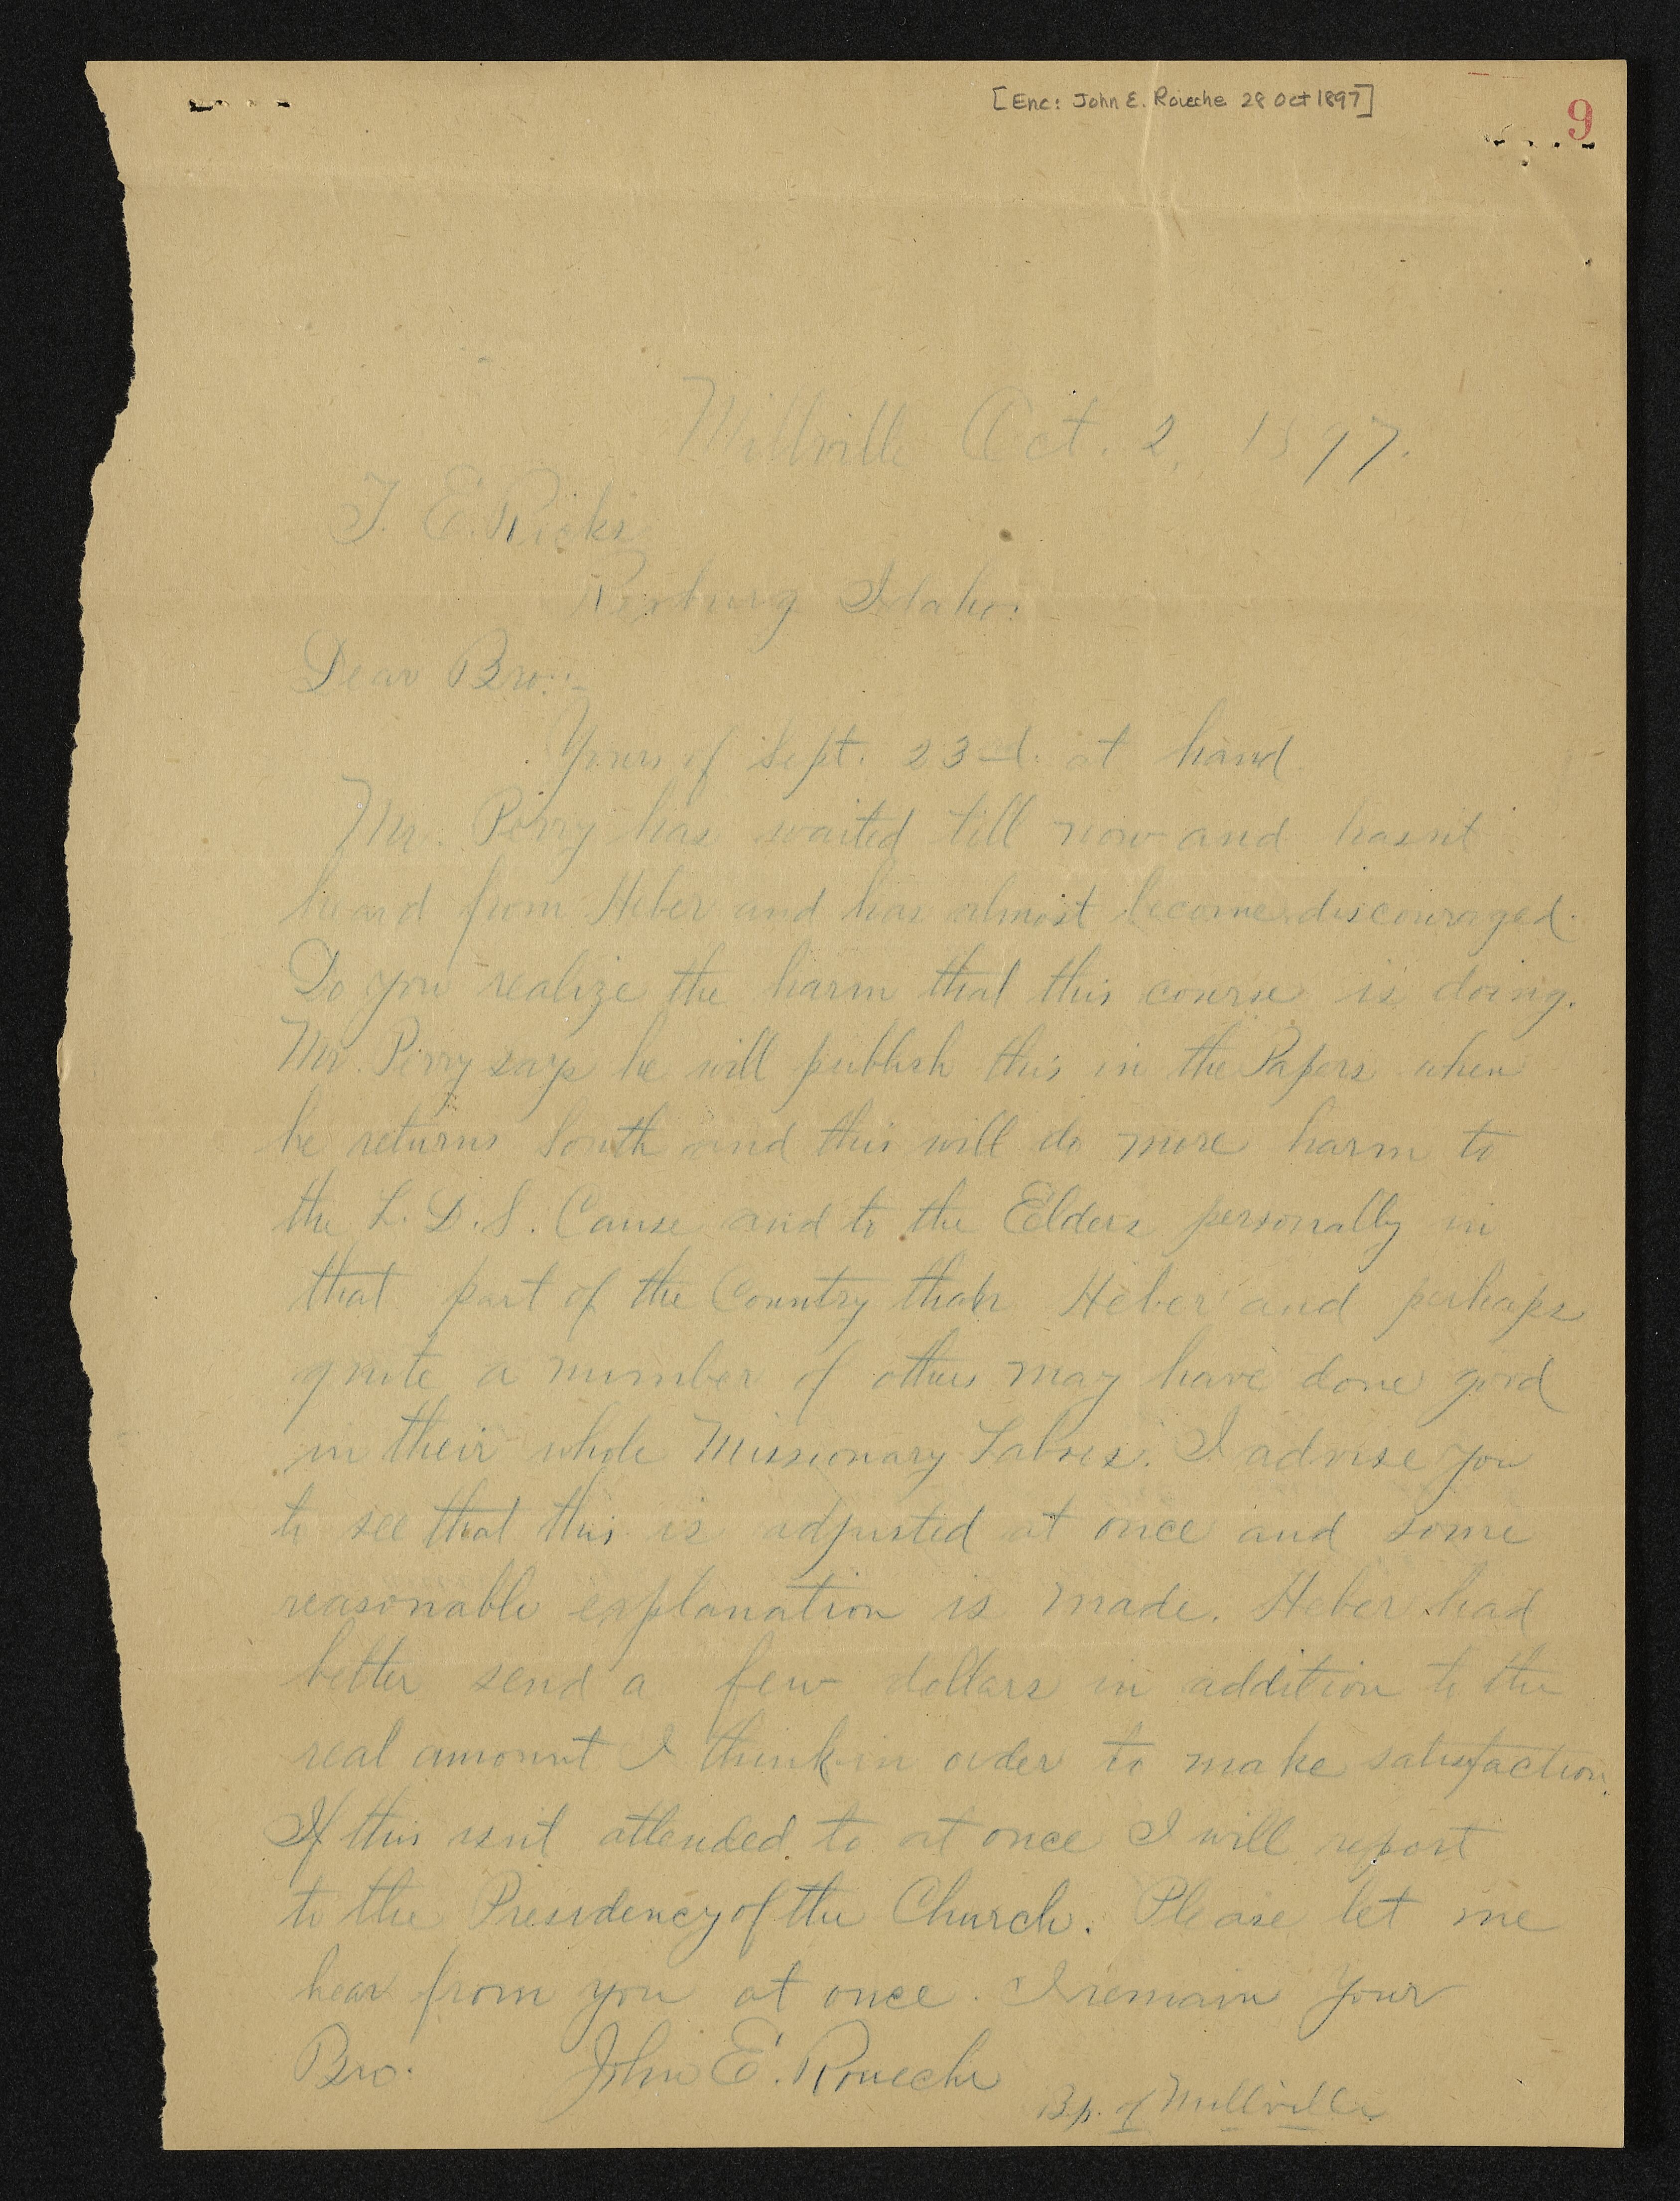 [Enc: John E. Roueche 28 Oct 1897]
9
Millville Oct. 2, 1897.
T. E. Ricks
Rexburg Idaho:
Dear Bro:-
Yours of Sept. 23d. at hand
Mr. Perry has waited till now and hasnt
heard from Heber and has almost become discouraged.
Do you realize the harm that this course is doing.
Mr. Perry says he will publish this in the Papers when
he returns South and this will do more harm to
the L. D. S. Cause and to the Elders personally in
that part of the Country than Heber and perhaps
quite a number of others may have done good
in their whole Missionary Labors. I advise you
to see that this is adjusted at once and some
reasonable explanation is made. Heber had
better send a few dollars in addition to the
real amount I think in order to make satisfaction.
If this isnt attended to at once I will report
to the Presidency of the Church. Please let me
hear from you at once. I remain Your
Bro. John E. Roueche
Bp. of Millville